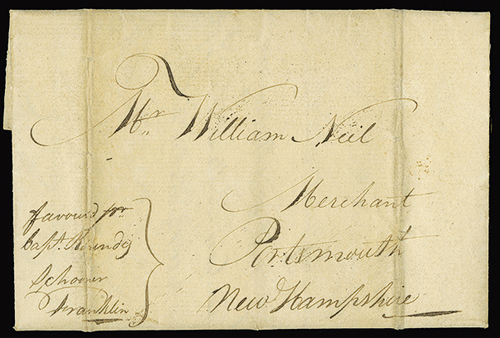 Mr. William Neil
Merchant
Portsmouth
New Hampshire
favourd pr
Capt
Schooner
Franklin